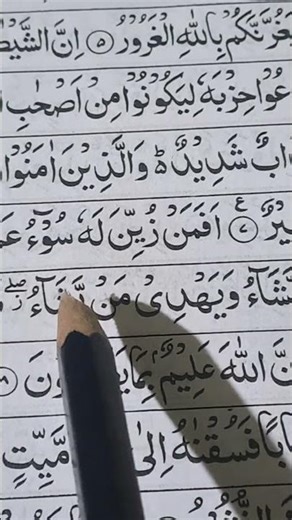 غُرَّنَّكُمْ بِاللّٰهِ الْغَرُوْرُ ۝۵ اِنَّ الشَّيْطٰ
عُوْا حِزْبَهٗ لِيَكُوْنُوْا مِنْ اَصْحٰبِ ا
ابٌ شَدِيْدٌ ؕ وَالَّذِيْنَ اٰمَنُوْا
يْرٌ ۝۷ اَفَمَنْ زُيِّنَ لَهٗ سُوْٓءُ عَمَ
يَّشَآءُ وَيَهْدِىْ مَنْ يَّشَآءُ ۖ
نَّ اللّٰهَ عَلِيْمٌۢ
ابًا فَسُقْنٰهُ اِلٰى مَّيِّتٍ